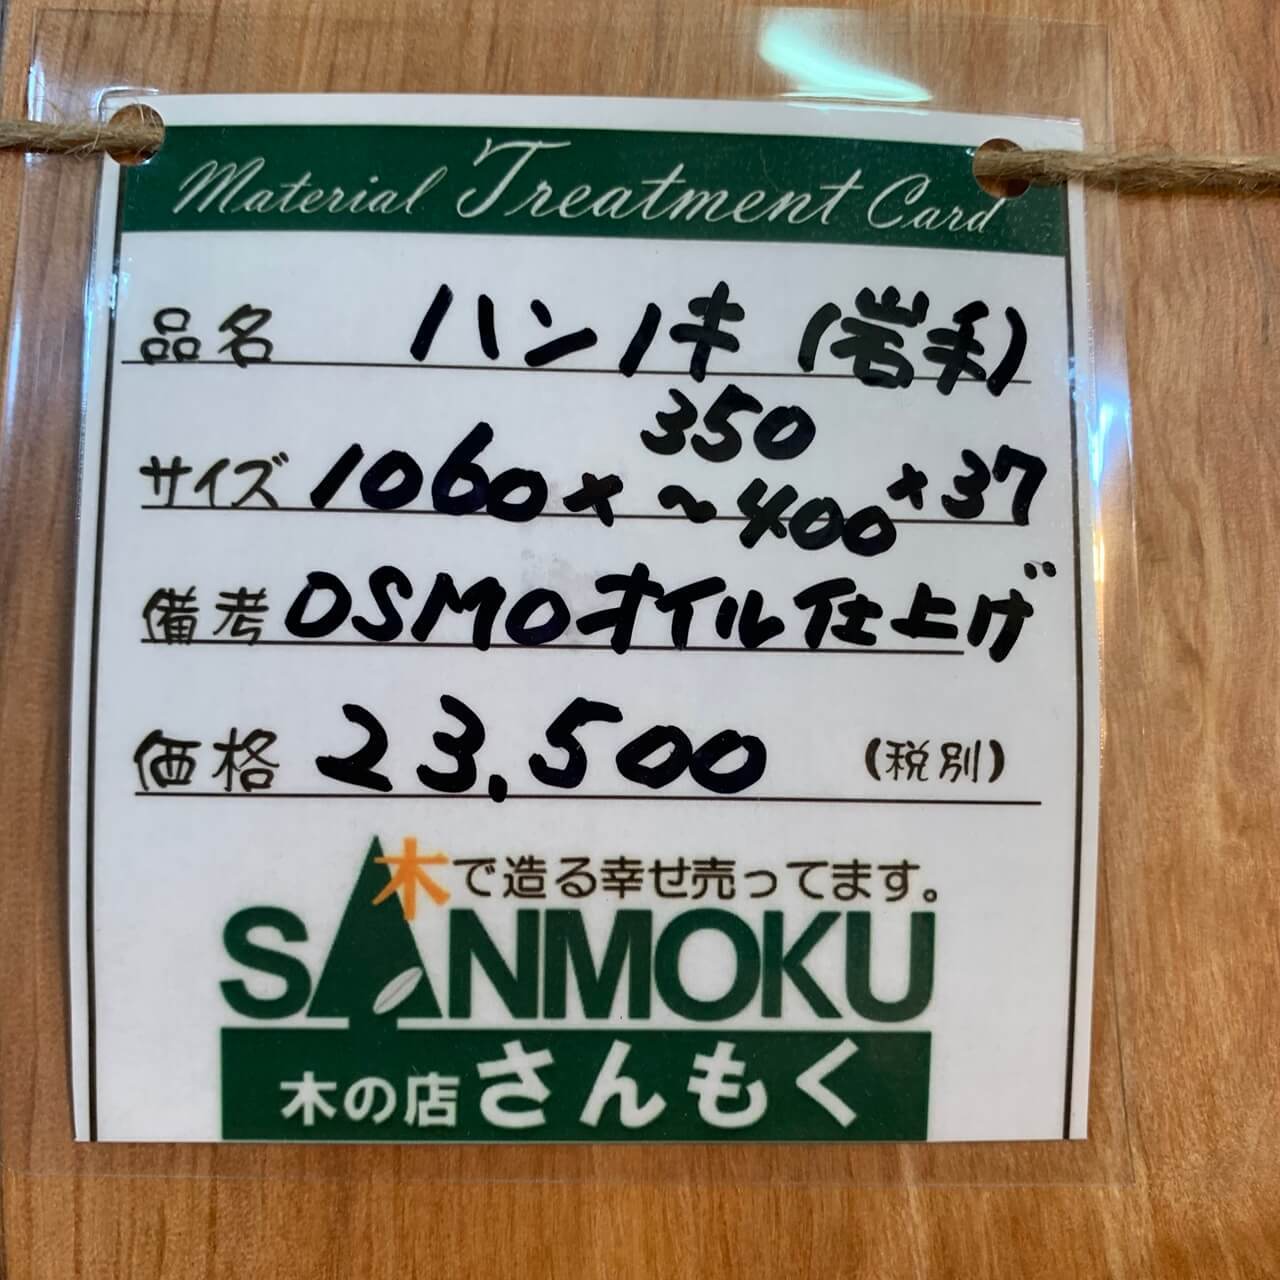 Material Treatment Card
品名 ハンノキ (岩手)
サイズ 1060×350~400×37
備考 OSMOオイル仕上げ
価格 23,500 (税別)
木で造る幸せ売ってます。
SANMOKU
木の店 さんもく